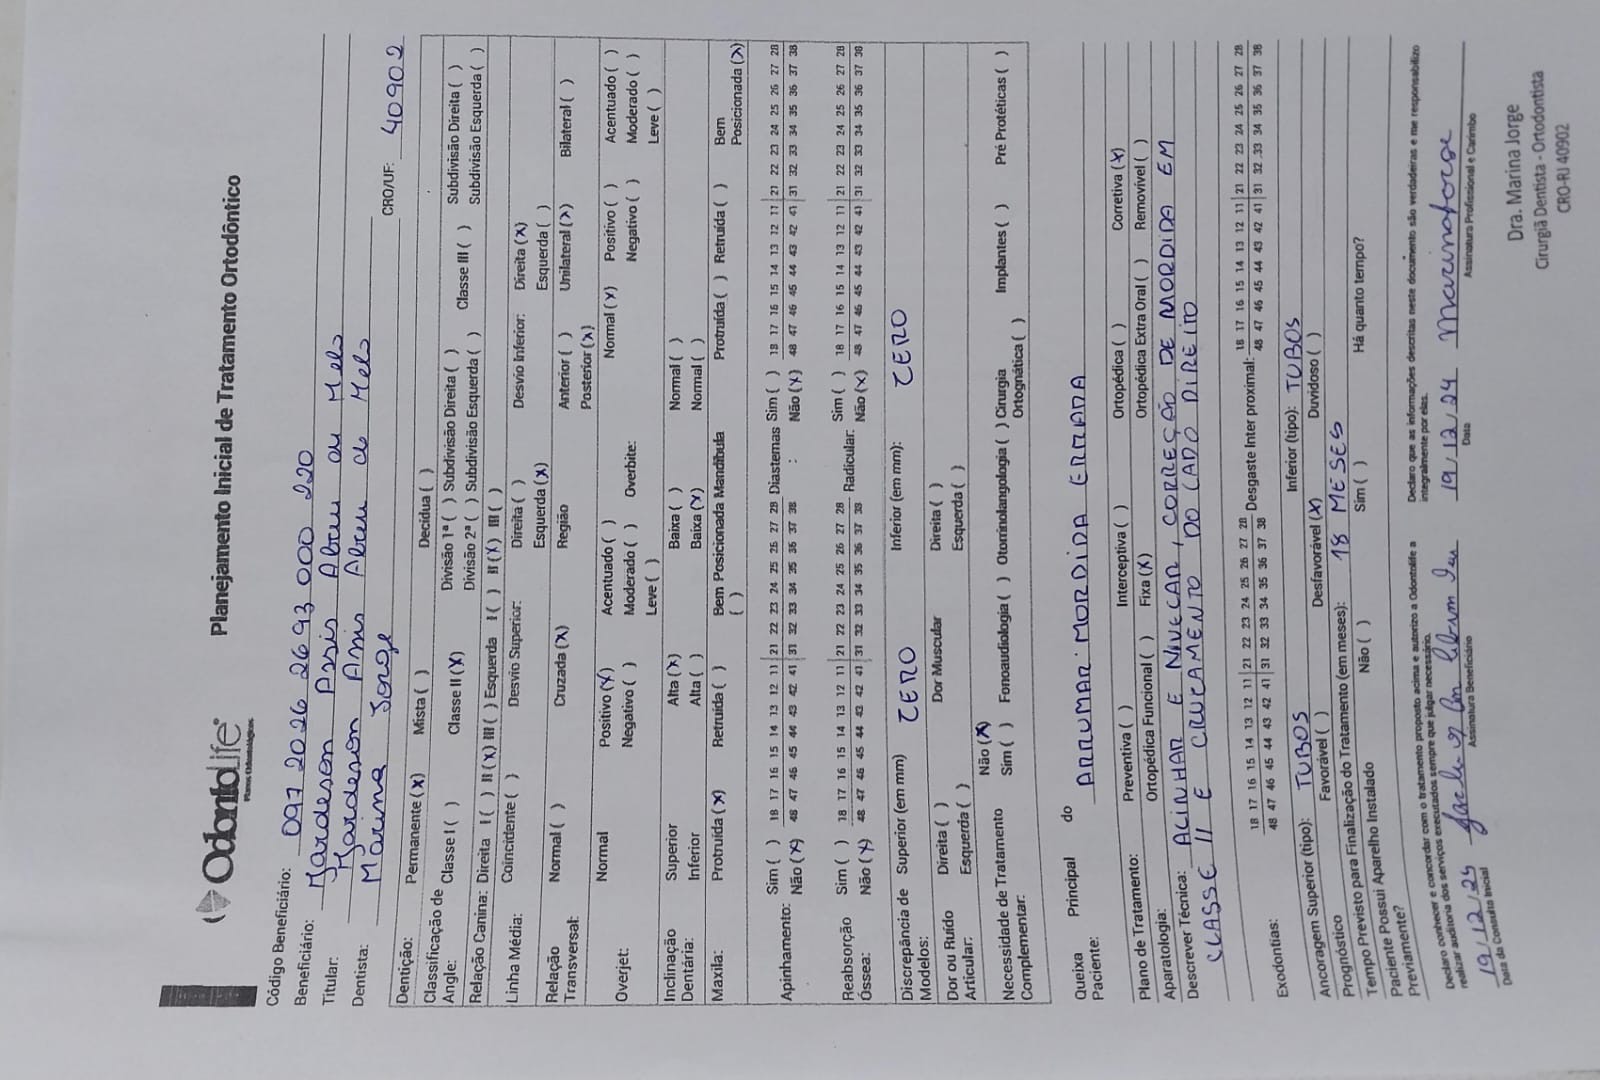 OdontoLife
Planos Odontológicos
Planejamento Inicial de Tratamento Ortodôntico
Código Beneficiário: 097 2026 2693 000 220
Beneficiário: Mardeson Assis Abreu de Melo
Titular: Mardeson Assis Abreu de Melo
Dentista: Marina Jorge CRO/UF: 40902
Dentição: Permanente (x) Mista ( ) Decídua ( )
Classificação de Angle: Classe I ( ) Classe II (x) Divisão 1ª ( ) Subdivisão Direita ( ) Classe III ( ) Subdivisão Direita ( )
Divisão 2ª ( ) Subdivisão Esquerda ( ) Subdivisão Esquerda ( )
Relação Canina: Direita I ( ) II (x) III ( ) Esquerda I ( ) II (x) III ( )
Linha Média: Coincidente ( ) Desvio Superior: Direita ( ) Desvio Inferior: Direita (x)
Esquerda (x) Esquerda ( )
Relação Transversal: Normal ( ) Cruzada (x) Região Anterior ( ) Unilateral (x) Bilateral ( )
Posterior (x)
Overjet: Normal Positivo (x) Acentuado ( ) Overbite: Normal (x) Positivo ( ) Acentuado ( )
Negativo ( ) Moderado ( ) Negativo ( ) Moderado ( )
Leve ( ) Leve ( )
Inclinação Dentária: Superior Alta (x) Baixa ( ) Normal ( )
Inferior Alta ( ) Baixa (x) Normal ( )
Maxila: Protruída (x) Retruída ( ) Bem Posicionada ( ) Mandíbula Protruída ( ) Retruída ( ) Bem Posicionada (x)
Apinhamento: Sim ( ) 18 17 16 15 14 13 12 11 | 21 22 23 24 25 26 27 28 Diastemas : Sim ( ) 18 17 16 15 14 13 12 11 | 21 22 23 24 25 26 27 28
Não (x) 48 47 46 45 44 43 42 41 | 31 32 33 34 35 36 37 38 Não (x) 48 47 46 45 44 43 42 41 | 31 32 33 34 35 36 37 38
Reabsorção Óssea: Sim ( ) 18 17 16 15 14 13 12 11 | 21 22 23 24 25 26 27 28 Radicular: Sim ( ) 18 17 16 15 14 13 12 11 | 21 22 23 24 25 26 27 28
Não (x) 48 47 46 45 44 43 42 41 | 31 32 33 34 35 36 37 38 Não (x) 48 47 46 45 44 43 42 41 | 31 32 33 34 35 36 37 38
Discrepância de Modelos: Superior (em mm) ZERO Inferior (em mm): ZERO
Dor ou Ruído Articular: Direita ( ) Dor Muscular Direita ( )
Esquerda ( ) Esquerda ( )
Não (x)
Necessidade de Tratamento Complementar: Sim ( ) Fonoaudiologia ( ) Otorrinolangologia ( ) Cirurgia Ortognática ( ) Implantes ( ) Pré Protéticas ( )
Queixa Principal do Paciente: ARRUMAR MORDIDA ERRADA
Plano de Tratamento: Preventiva ( ) Interceptiva ( ) Ortopédica ( ) Corretiva (x)
Aparatologia: Ortopédica Funcional ( ) Fixa (x) Ortopédica Extra Oral ( ) Removível ( )
Descrever Técnica: ALINHAR E NIVELAR, CORREÇÃO DE MORDIDA EM
CLASSE II E CRUZAMENTO DO LADO DIREITO
Exodontias: 18 17 16 15 14 13 12 11 | 21 22 23 24 25 26 27 28 Desgaste Inter proximal: 18 17 16 15 14 13 12 11 | 21 22 23 24 25 26 27 28
48 47 46 45 44 43 42 41 | 31 32 33 34 35 36 37 38 48 47 46 45 44 43 42 41 | 31 32 33 34 35 36 37 38
Ancoragem Superior (tipo): TUBOS Inferior (tipo): TUBOS
Prognóstico Favorável ( ) Desfavorável (x) Duvidoso ( )
Tempo Previsto para Finalização do Tratamento (em meses): 18 MESES
Paciente Possui Aparelho Instalado Previamente? Não ( ) Sim ( ) Há quanto tempo?
Declaro conhecer e concordar com o tratamento proposto acima e autorizo a Odontolife a
realizar auditoria dos serviços executados sempre que julgar necessário.
Declaro que as informações descritas neste documento são verdadeiras e me responsabilizo
integralmente por elas.
19/12/24 19/12/24 Marina Jorge
Data da Consulta Inicial Assinatura Beneficiário Data Assinatura Profissional e Carimbo
Dra. Marina Jorge
Cirurgiã Dentista - Ortodontista
CRO-RJ 40902